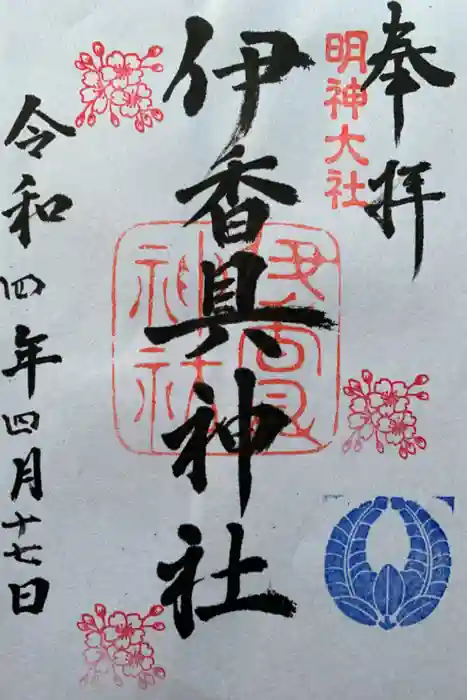 奉拝
明神大社
伊香具神社
伊香具神社
令和四年四月十七日